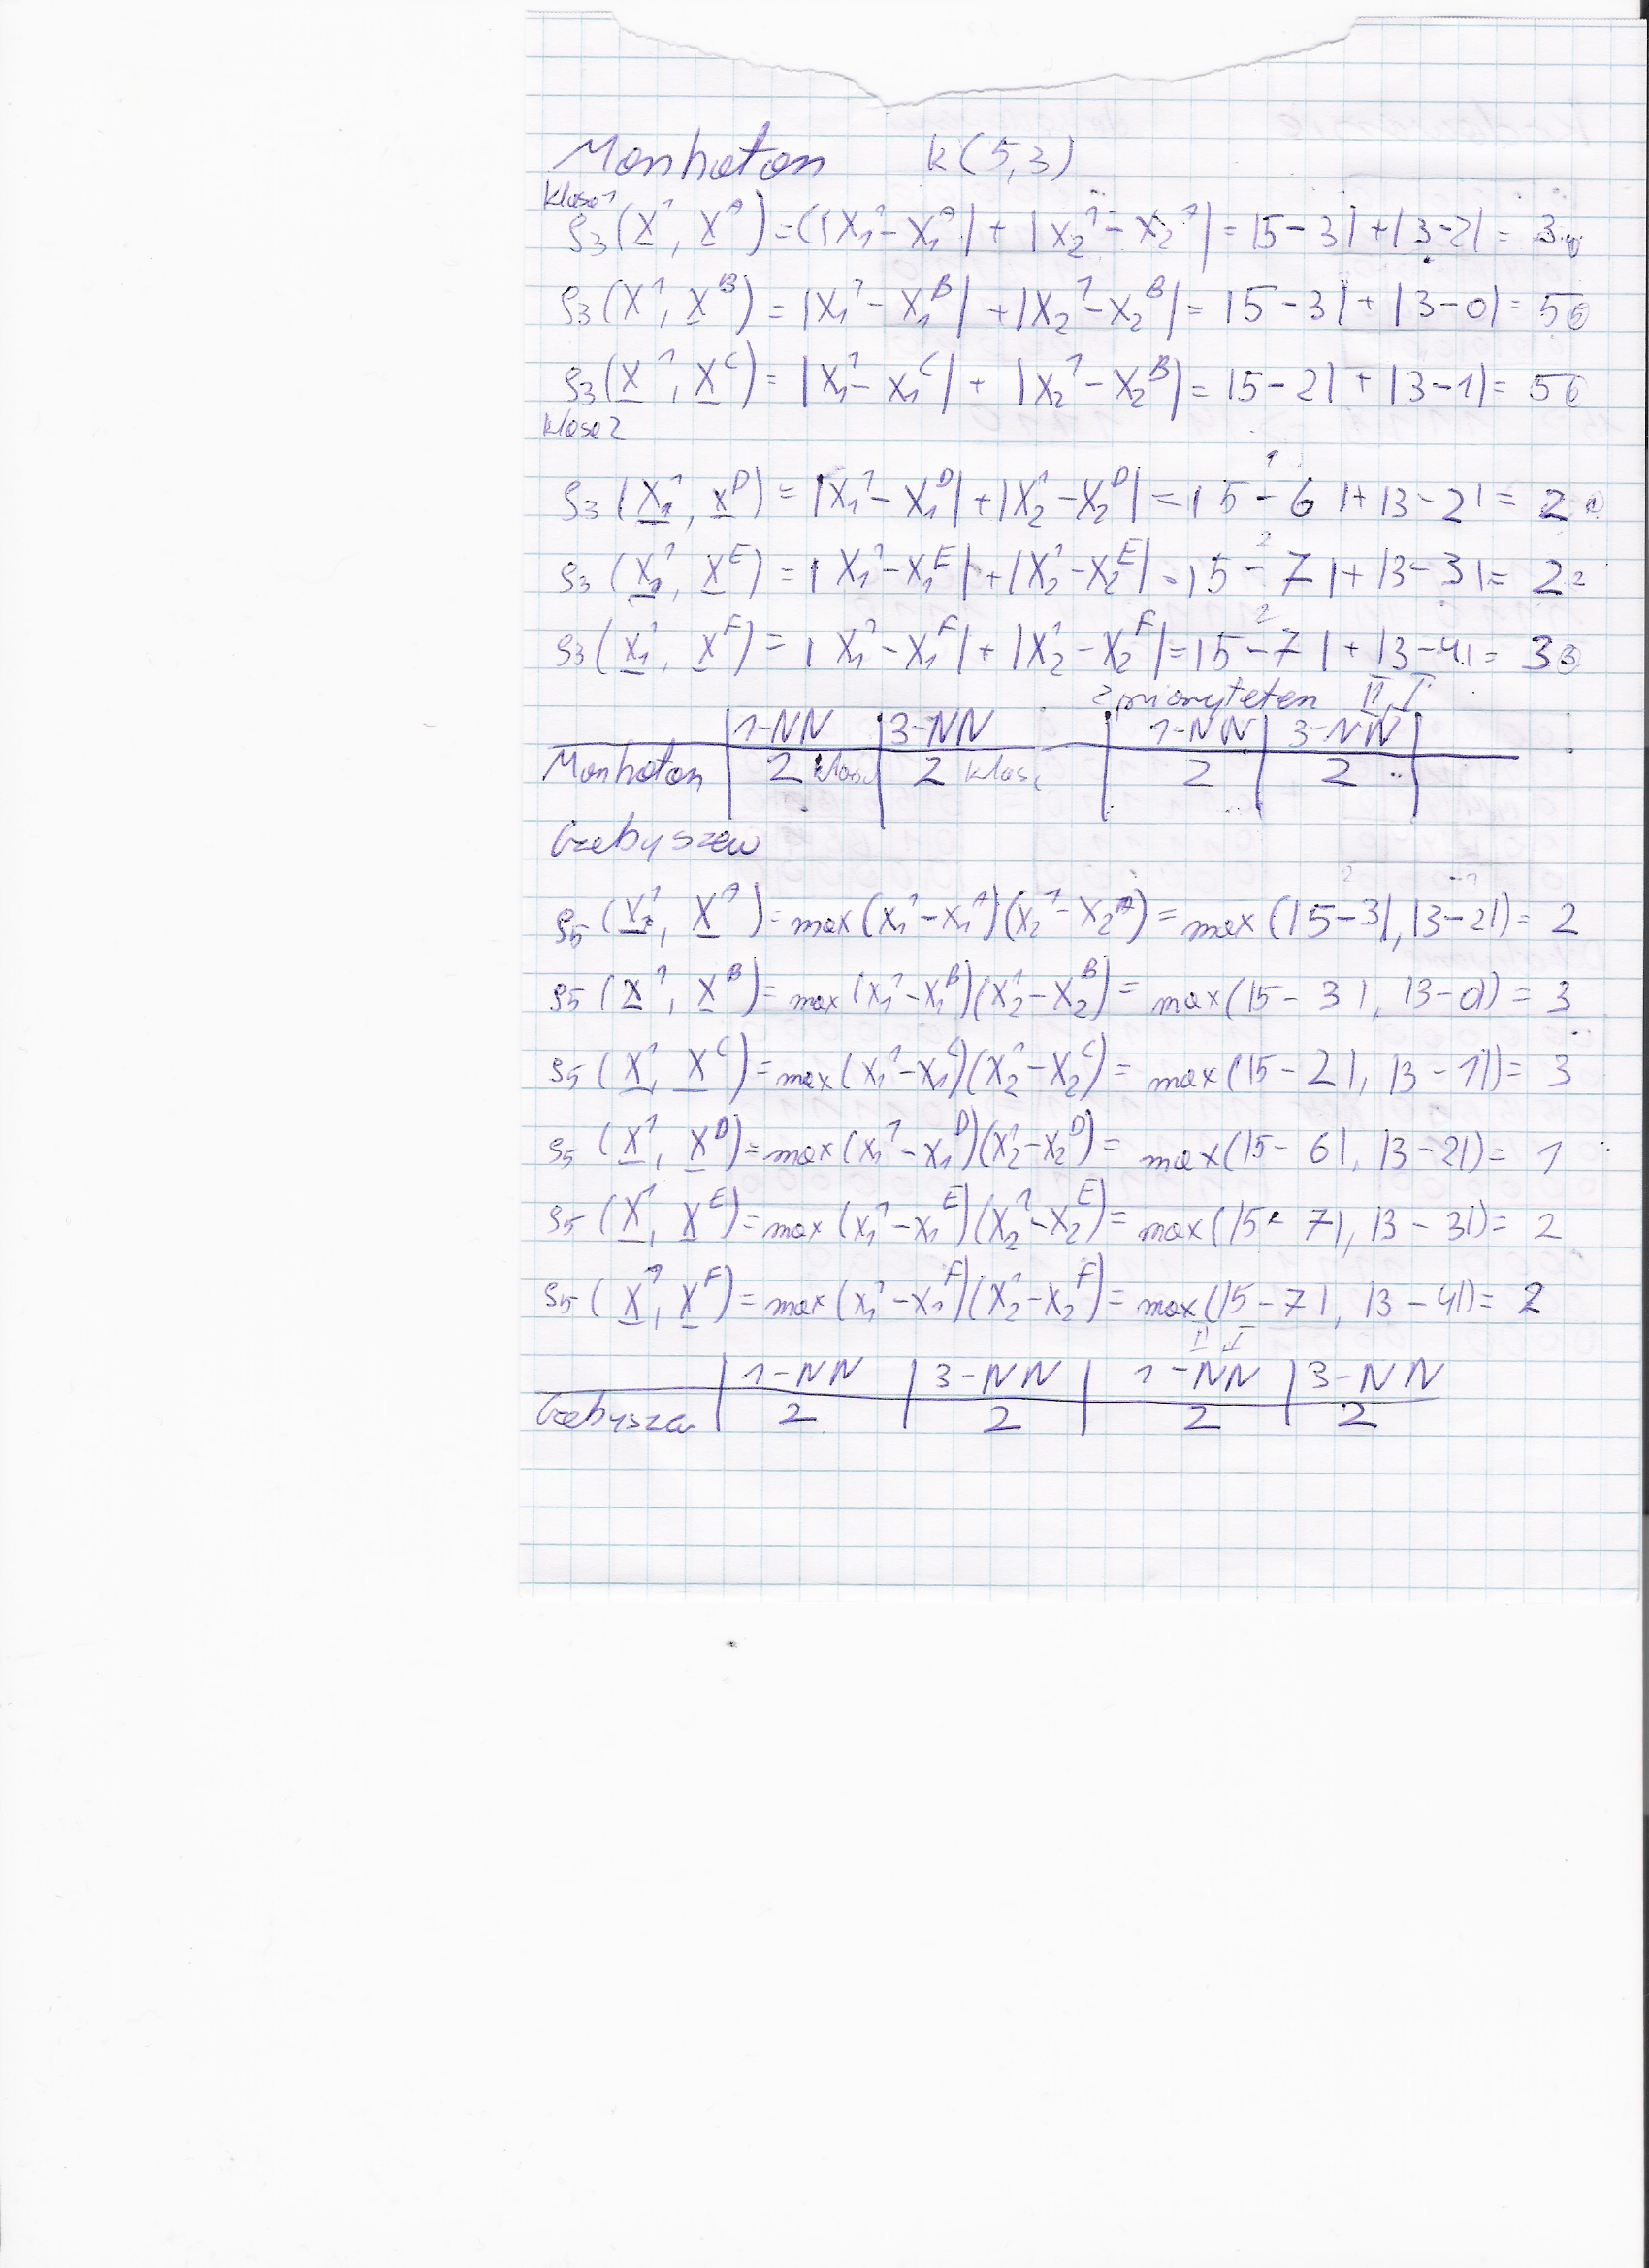 Manhatan k(5,3)
klasa 1
ρ3(X¹, X^A) = (|X₁¹ - X₁^A| + |X₂¹ - X₂¹| = |5-3| + |3-2| = 3
ρ3(X¹, X^B) = |X₁¹ - X₁^B| + |X₂¹ - X₂^B| = |5-3| + |3-0| = 5
ρ3(X¹, X^C) = |X₁¹ - X₁^C| + |X₂¹ - X₂^B| = |5-2| + |3-1| = 5
klasa 2
ρ3(X₁¹, X^D) = |X₁¹ - X₁^D| + |X₂¹ - X₂^D| = |5-6| + |3-2| = 2
ρ3(X₁¹, X^E) = |X₁¹ - X₁^E| + |X₂¹ - X₂^E| = |5-7| + |3-3| = 2
ρ3(X₁¹, X^F) = |X₁¹ - X₁^F| + |X₂¹ - X₂^F| = |5-7| + |3-4| = 3
z priorytetem II, I
1-NN 3-NN 1-NN 3-NN
Manhatan 2 klasa 2 klasa 2 2
Czebyszew
ρ5(X¹, X^A) = max(x₁¹ - x₁^A)(x₂¹ - x₂^A) = max(|5-3|, |3-2|) = 2
ρ5(X¹, X^B) = max(x₁¹ - x₁^B)(x₂¹ - x₂^B) = max(|5-3|, |3-0|) = 3
ρ5(X¹, X^C) = max(x₁¹ - x₁^C)(x₂¹ - x₂^C) = max(|5-2|, |3-1|) = 3
ρ5(X¹, X^D) = max(x₁¹ - x₁^D)(x₂¹ - x₂^D) = max(|5-6|, |3-2|) = 1
ρ5(X¹, X^E) = max(x₁¹ - x₁^E)(x₂¹ - x₂^E) = max(|5-7|, |3-3|) = 2
ρ5(X¹, X^F) = max(x₁¹ - x₁^F)(x₂¹ - x₂^F) = max(|5-7|, |3-4|) = 2
II I
1-NN 3-NN 1-NN 3-NN
Czebyszew 2 2 2 2